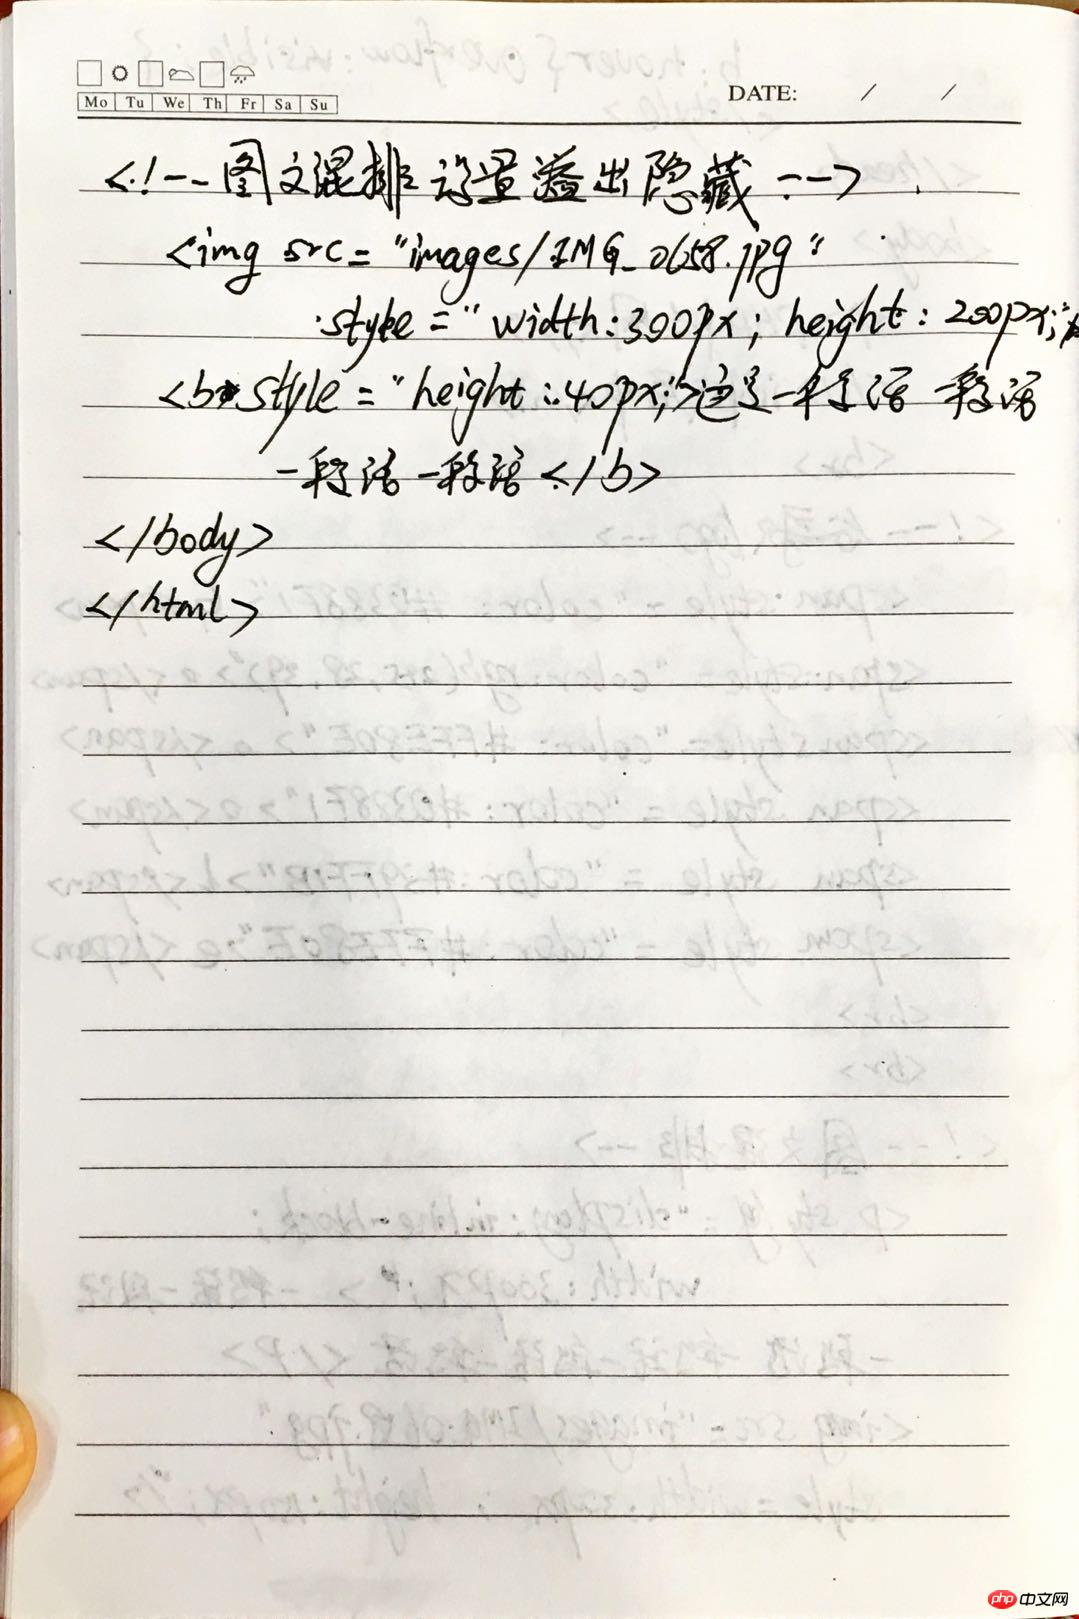 Mo Tu We Th Fr Sa Su
DATE: / /
<!-- 图文混排 设置溢出隐藏 -->
<img src="images/IMG_0658.jpg"
style="width:300px; height:200px;"/
<b style="height:40px;">这是一段话 一段话
一段话 一段话</b>
</body>
</html>
php中文网